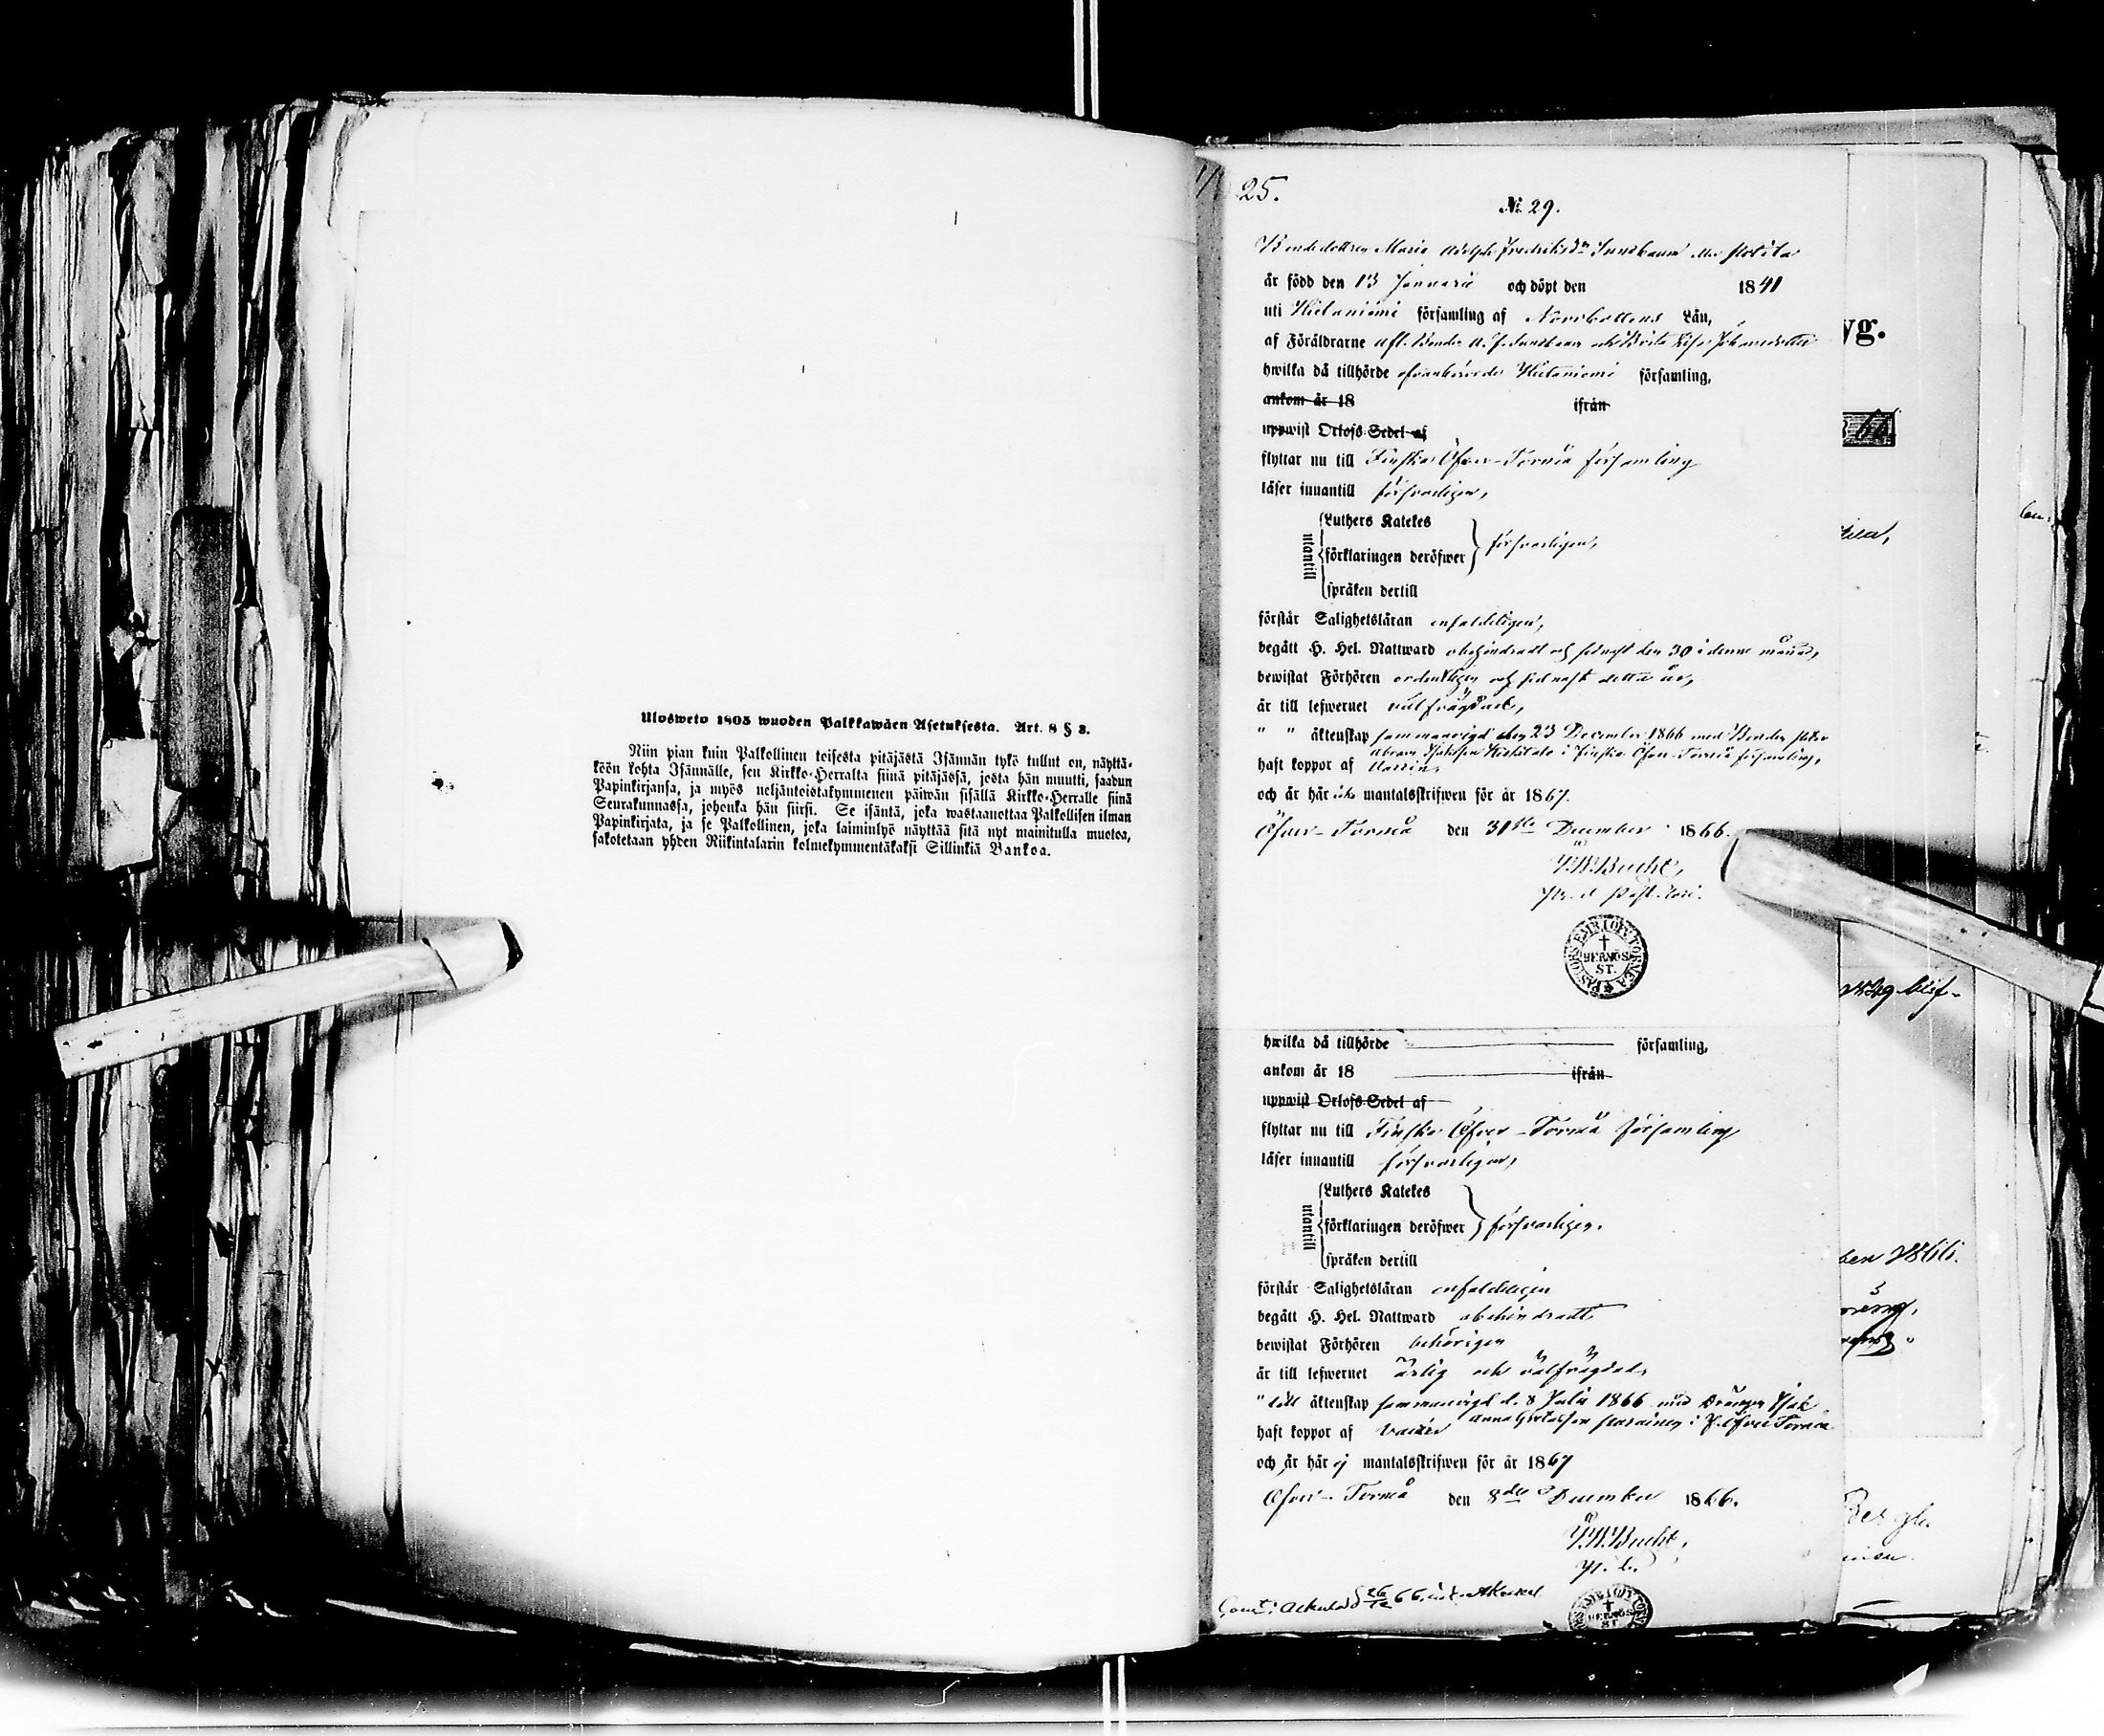 Ulosweto 1805 wuoden Palkkawäen Asetuksesta. Art. 8 § 3.
Niin pian kuin Palkollinen toisesta pitäjästä Isännän tykö tullut on, näyttä-
köön kohta Isännälle, sen Kirkko-Herralta siinä pitäjässä, josta hän muutti, saadun
Papinkirjansa, ja myös neljäntoistakymmenen päiwän sisällä Kirkko-Herralle siinä
Seurakunnassa, johonka hän siirsi. Se isäntä, joka wastaanottaa Palkollisen ilman
Papinkirjata, ja se Palkollinen, joka laiminlyö näyttää sitä nyt mainitulla muotoa,
sakotetaan yhden Riikintalarin kolmekymmentäkaksi Sillinkiä Bankoa.
25.
№ 29.
Bondedottren Maria Adolph Fredriksdr
är född den 13 Januarii och döpt den 1841
uti Hietaniemi församling af Norrbottens Län,
af Föräldrarne afl. Bonden A. F. och Brita Johansdotter
hwilka då tillhörde ofvanberörde Hietaniemi församling,
ankom år 18 ifrån
uppwist Orlofs-Sedel af
flyttar nu till Finska Öfver-Torneå församling
läser innantill försvarligen,
utantill
Luthers Katekes
förklaringen deröfwer försvarligen,
språken dertill
förstår Salighetsläran enfaldeligen,
begått H. Hel. Nattward obehindradt och sednast den 30 i denne månad,
bewistat Förhören ordentligen och sednast detta år,
är till lefwernet välfrägdad,
" " äktenskap sammanvigd den 23 December 1866 med Bonden
Abram i Finska Öfver-Torneå församling,
haft koppor af Vaccin,
och är här mantalsskrifwen för år 1867.
Öfver-Torneå den 31sta December 1866.
P. W. Bucht,
PASTORS EMB. I ÖFV. TORNEÅ
HERNÖS.
ST.
hwilka då tillhörde församling,
ankom år 18 ifrån
uppwist Orlofs-Sedel af
flyttar nu till Finska Öfver-Torneå församling
läser innantill försvarligen,
utantill
Luthers Katekes
förklaringen deröfwer försvarligen.
språken dertill
förstår Salighetsläran enfaldeligen
begått H. Hel. Nattward obehindradt
bewistat Förhören behörigen
är till lefwernet ärlig och välfrägdad,
" till äktenskap sammanvigd d. 8 Julii 1866 med Drängen Isak
i F. Öfver Torneå
haft koppor af Vaccin
och är här ej mantalsskrifwen för år 1867
Öfver-Torneå den 8de December 1866.
P. W. Bucht,
HERNÖS
ST